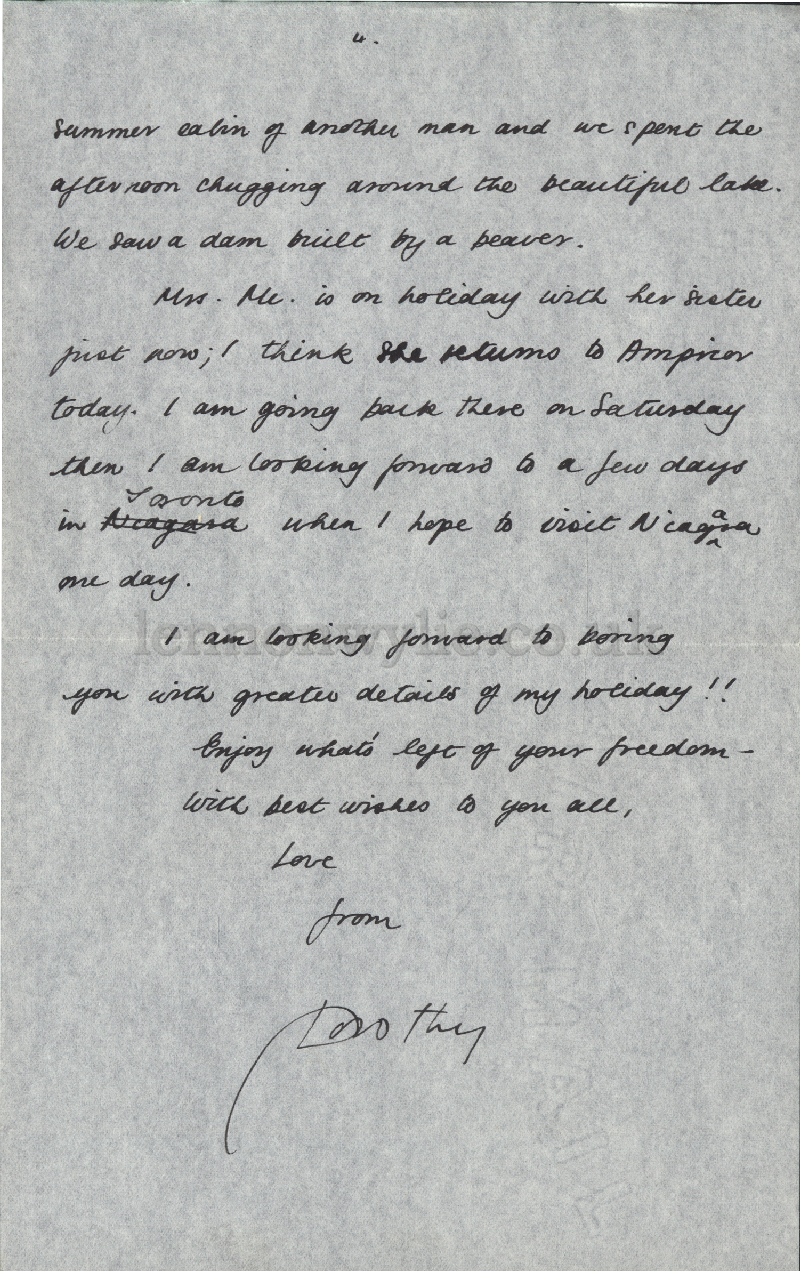 4.
summer cabin of another man and we spent the
afternoon chugging around the beautiful lake.
We saw a dam built by a beaver.
Mrs. Mc. is on holiday with her sister
just now; I think she returns to Arnprior
today. I am going back there on Saturday
then I am looking forward to a few days
Toronto
in Niagara when I hope to visit Niagara
one day.
lennonwylie.co.uk
I am looking forward to boring
you with greater details of my holiday!!
Enjoy what's left of your freedom –
With best wishes to you all,
Love
from
Dorothy